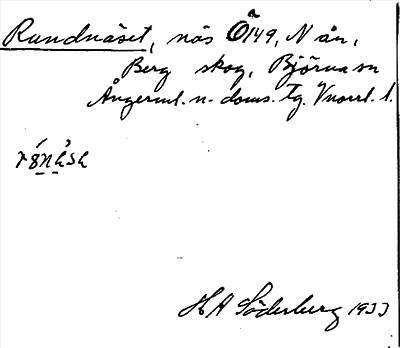 Rundnäset, näs Ö149, N ån,
Berg skog, Björna sn
Ångerml. n. doms. Tg. Vnorrl. l.
H A Söderberg 1933